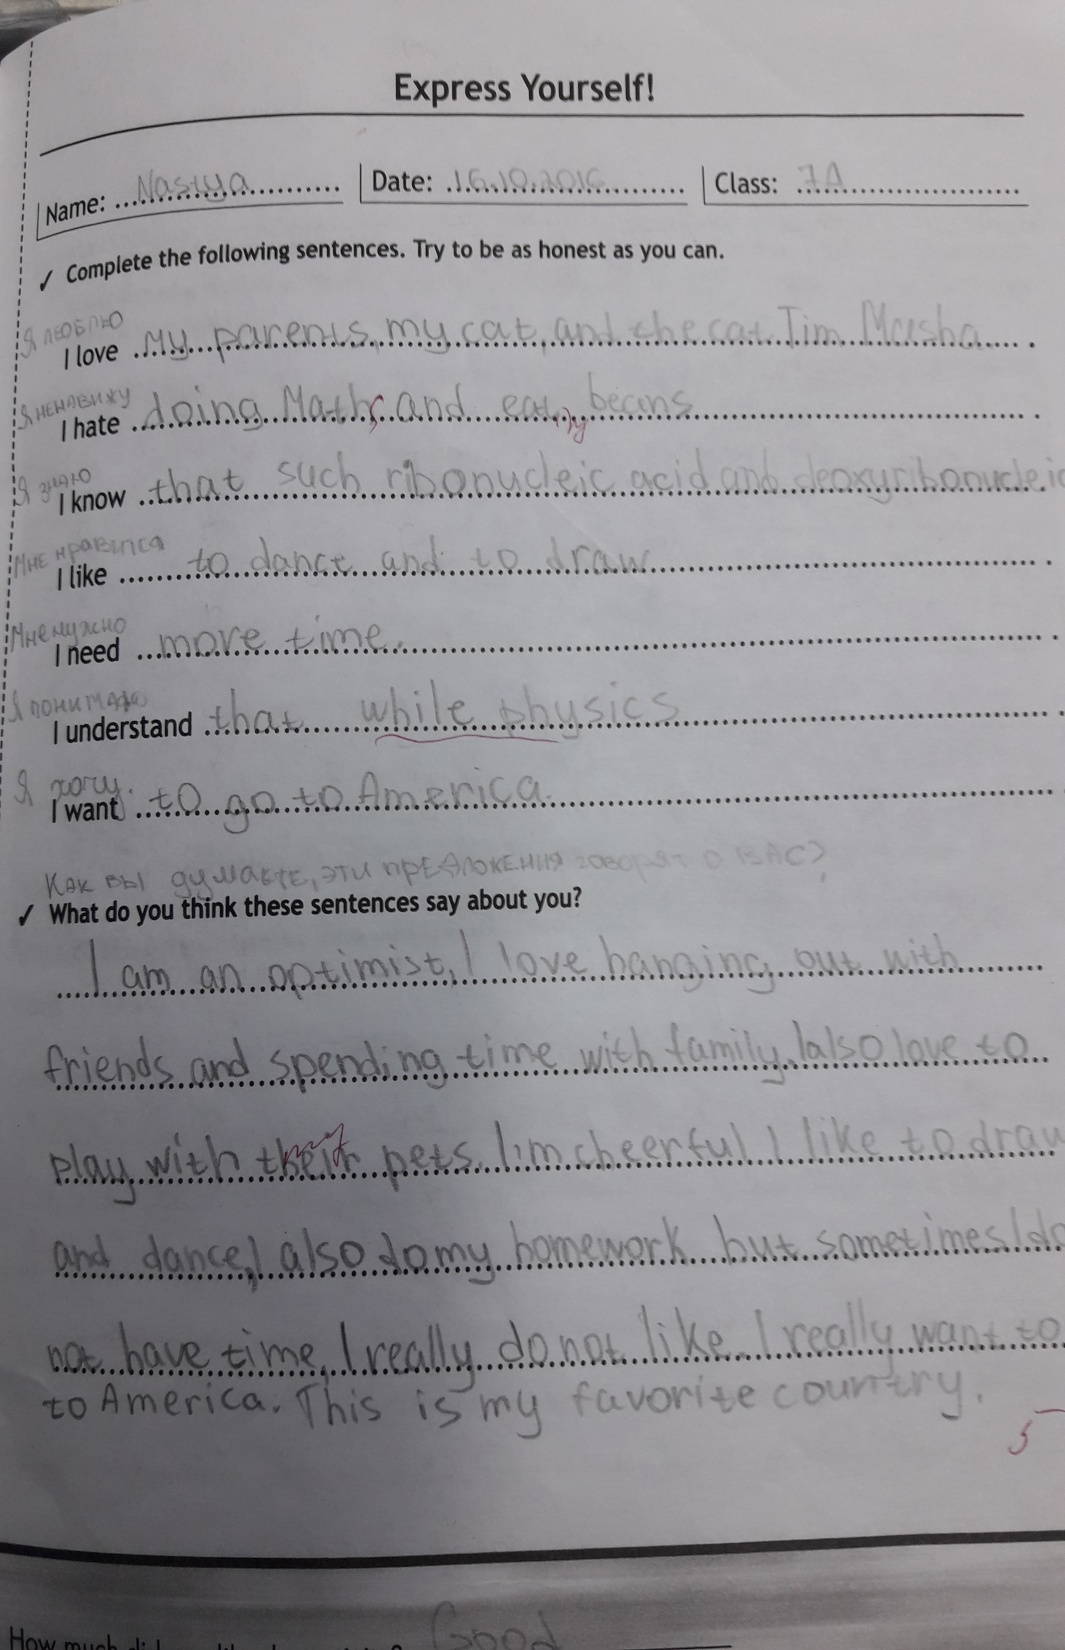 Express Yourself!
Name: Nastya Date: 16.10.2016 Class: 7A
✓ Complete the following sentences. Try to be as honest as you can.
Я люблю
I love my parents, my cat, and the cat Tim Masha
Я ненавижу
I hate doing Maths and eating beans
Я знаю
I know that such ribonucleic acid and deoxyribonucleic
Мне нравится
I like to dance and to draw
Мне нужно
I need more time.
Я понимаю
I understand that while physics
Я хочу.
I want to go to America.
Как вы думаете, эти предложения говорят о вас?
✓ What do you think these sentences say about you?
I am an optimist, I love hanging out with
friends and spending time with family. I also love to
play with their my pets. I'm cheerful I like to draw
and dance, I also do my homework but sometimes I do
not have time, I really do not like. I really want to
to America. This is my favorite country.
5
Good